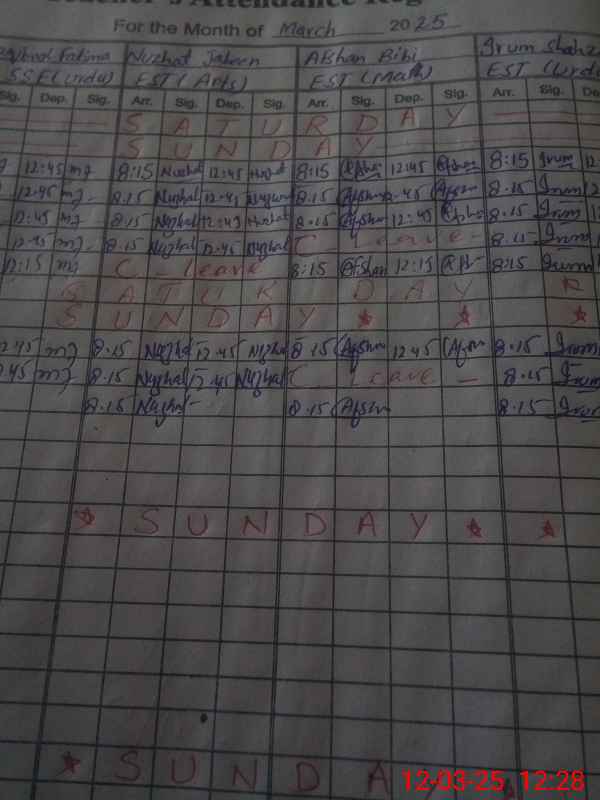 Teacher's Attendance Reg
For the Month of March 2025
Fatima Nuzhat Jabeen Afshan Bibi Irum Shahz
SSE (Urdu) EST (Arts) EST (Math) EST (Urdu
Sig. Dep. Sig. Arr. Sig. Dep. Sig. Arr. Sig. Dep. Sig. Arr. Sig. De
S A T U R D A Y
S U N D A Y
12:45 8:15 Nuzhat 12:45 Nuzhat 8:15 Afshan 12:45 Afshan 8:15 Irum 12
12.45 8.15 Nuzhat 12.45 8.15 Afshan 12.45 Afshan 8.15 Irum 12
12.45 8.15 Nuzhat 12:45 Nuzhat 8.15 Afshan 12:45 Afshan 8.15 Irum
12.45 8.15 Nuzhat 12.45 Nuzhat C - Leave - 8.15 Irum
12:15 C - Leave 8:15 Afshan 12:15 8:15 Irum
S A T U R D A Y
S U N D A Y
2.45 8.15 Nuzhat 12.45 Nuzhat 8.15 Afshan 12.45 Afshan 8.15 Irum
.45 8.15 Nuzhat 12.45 Nuzhat C Leave - 8.15 Irum
8.15 Nuzhat 8.15 Afshan 8.15 Irum
S U N D A Y
S U N D A
12-03-25 12:28